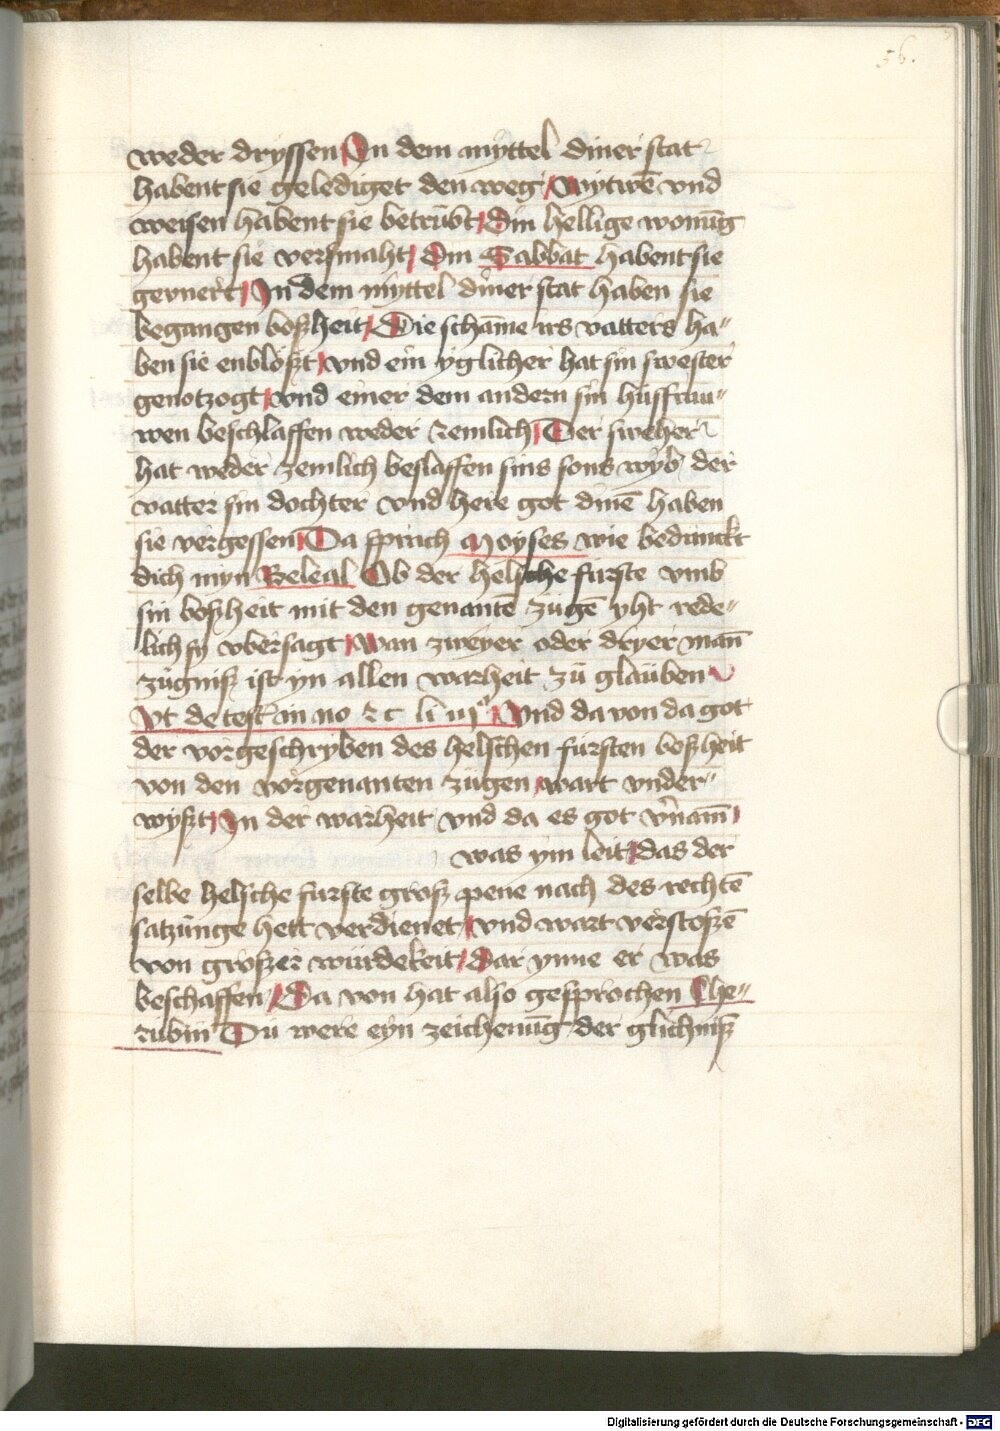 56.
weder dryssen In dem myttel diner stat
habent sie gelediget den weg / wytwē vnd
weisen habent sie betrůbt / Din hellige wonūg
habent sie versmaht / Din Sabbat habent sie
gevnert / In dem myttel diner stat haben sie
begangen boßheit / Die schāme irs vatters ha"
ben sie enblößt / vnd ein yglicher hat sin swester
genotzogt / vnd einer dem andern sin husfrau"
wen beschlaffen weder zemlich / Der sweher
hat weder zemlich beslaffen sins sons wyb / der
vatter sin dochter vnd here got dinē haben
sie vergessen / Da sprach Moyses wie bedunckt
dich myn Beleal Ob der helsche furste vmb
sin boßheit mit den genantē zůgē yht rede"
lich sy vbersagt / wan zweyer oder dryer mān
zůgniß ist yn allen warheit zů glauben
vt de test in no
Vnd da von da got
der vorgeschryben des helschen fursten boßheit
von den vorgenanten zůgen / wart vnder"
wyßt / In der warheit vnd da es got v'nam /
was ym leit / das der
selbe helsche furste groß pene nach des rechtē
satzunge hett verdienet / vnd wart verstoßē
von großer wůrdekeit / Dar ynne er was
beschaffen / Da von hat also gesprochen Che"
rubin Du were eyn zeichenūg der glichniß
Digitalisierung gefördert durch die Deutsche Forschungsgemeinschaft - DFG